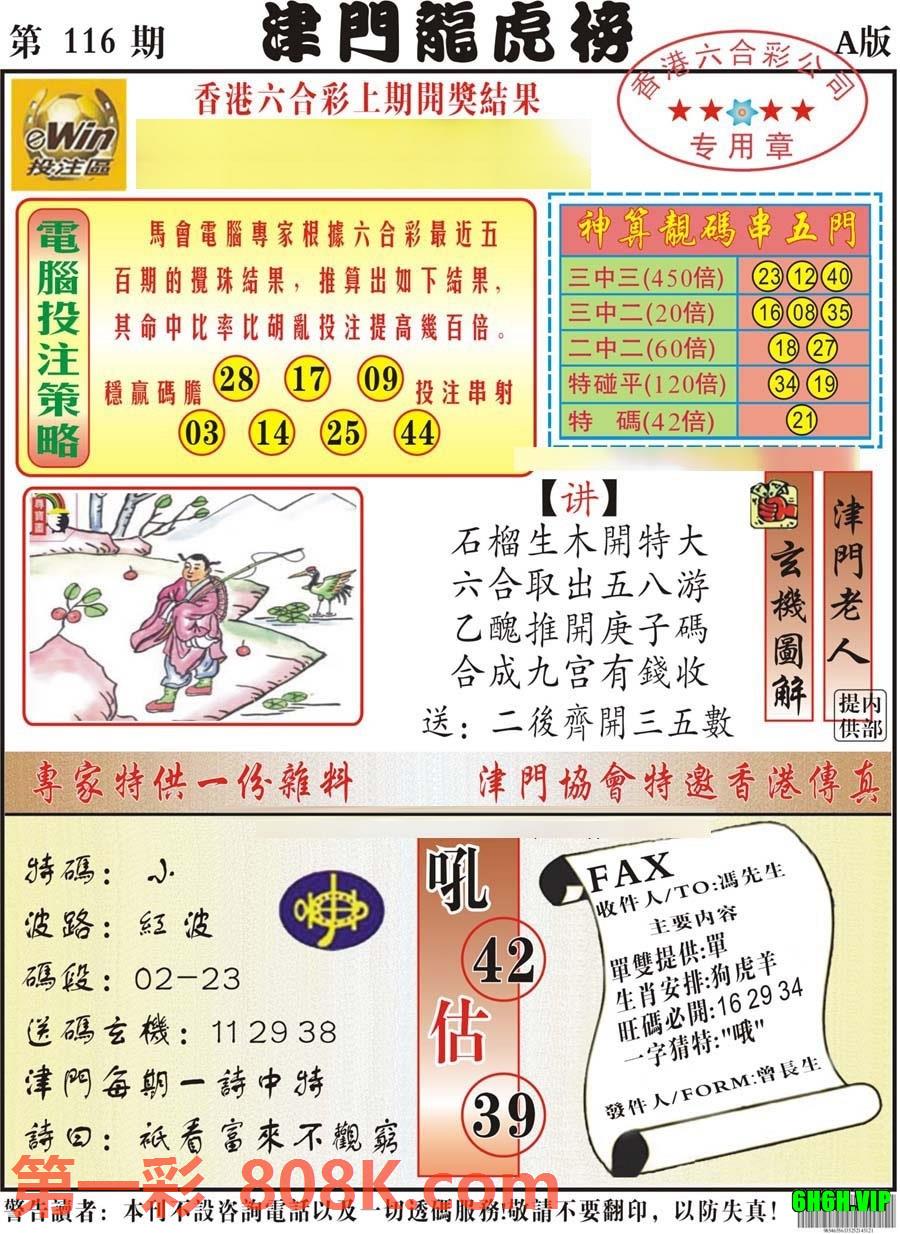 第 116 期
津門龍虎榜
A版
香港六合彩公司
专用章
eWin
投注區
香港六合彩上期開獎結果
電腦投注策略
馬會電腦專家根據六合彩最近五
百期的攪珠結果，推算出如下結果，
其命中比率比胡亂投注提高幾百倍。
穩贏碼膽 28 17 09 投注串射
03 14 25 44
神算靚碼串五門
三中三(450倍) 23 12 40
三中二(20倍) 16 08 35
二中二(60倍) 18 27
特碰平(120倍) 34 19
特 碼(42倍) 21
尋寶圖
【讲】
石榴生木開特大
六合取出五八游
乙醜推開庚子碼
合成九宫有錢收
送：二後齊開三五數
玄機圖解
津門老人
内部提供
專家特供一份雜料
津門協會特邀香港傳真
特碼：小
波路：紅波
碼段：02-23
送碼玄機：11 29 38
津門每期一詩中特
詩曰：祇看富來不觀窮
吼
42
估
39
FAX
收件人/TO:馮先生
主要内容
單雙提供:單
生肖安排:狗虎羊
旺碼必開:16 29 34
一字猜特:"哦"
發件人/FORM:曾長生
第一彩 808K.com
警告讀者：本刊不設咨詢電話以及一切透碼服務!敬請不要翻印，以防失真!
6H6H.VIP